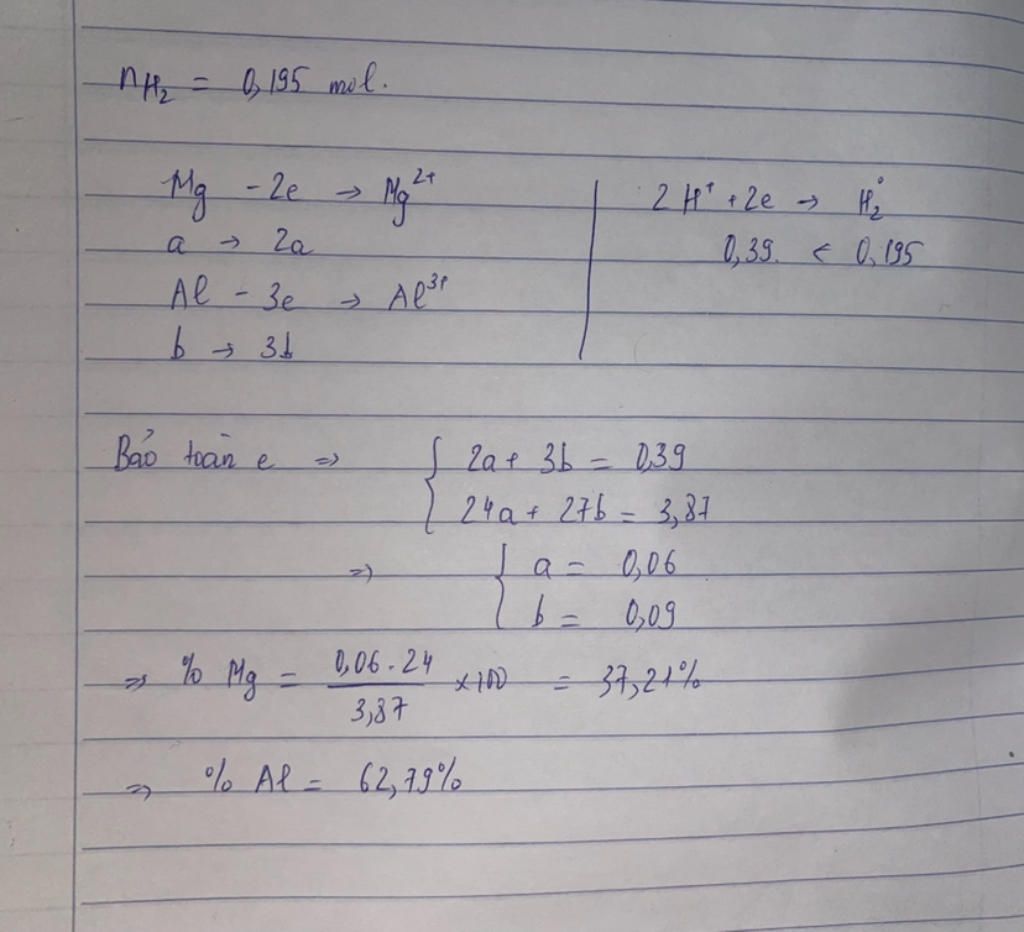 nH₂ = 0,195 mol.
Mg - 2e → Mg²⁺
a → 2a
Al - 3e → Al³⁺
b → 3b
2H⁺ + 2e → H₂⁰
0,39. ← 0,195
Bảo toàn e ⇒ { 2a + 3b = 0,39
24a + 27b = 3,87
⇒ { a = 0,06
b = 0,09
⇒ % Mg = (0,06 . 24) / 3,87 × 100 = 37,21%
⇒ % Al = 62,79%